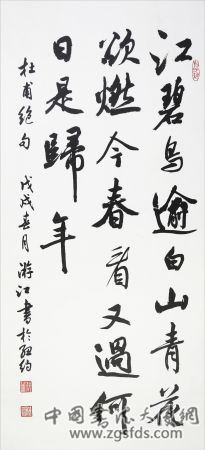 江碧鳥逾白山青花
欲燃今春看又過何
日是歸年
杜甫絕句 戊戌春月 游江書於紐約
www.zgsfds.com